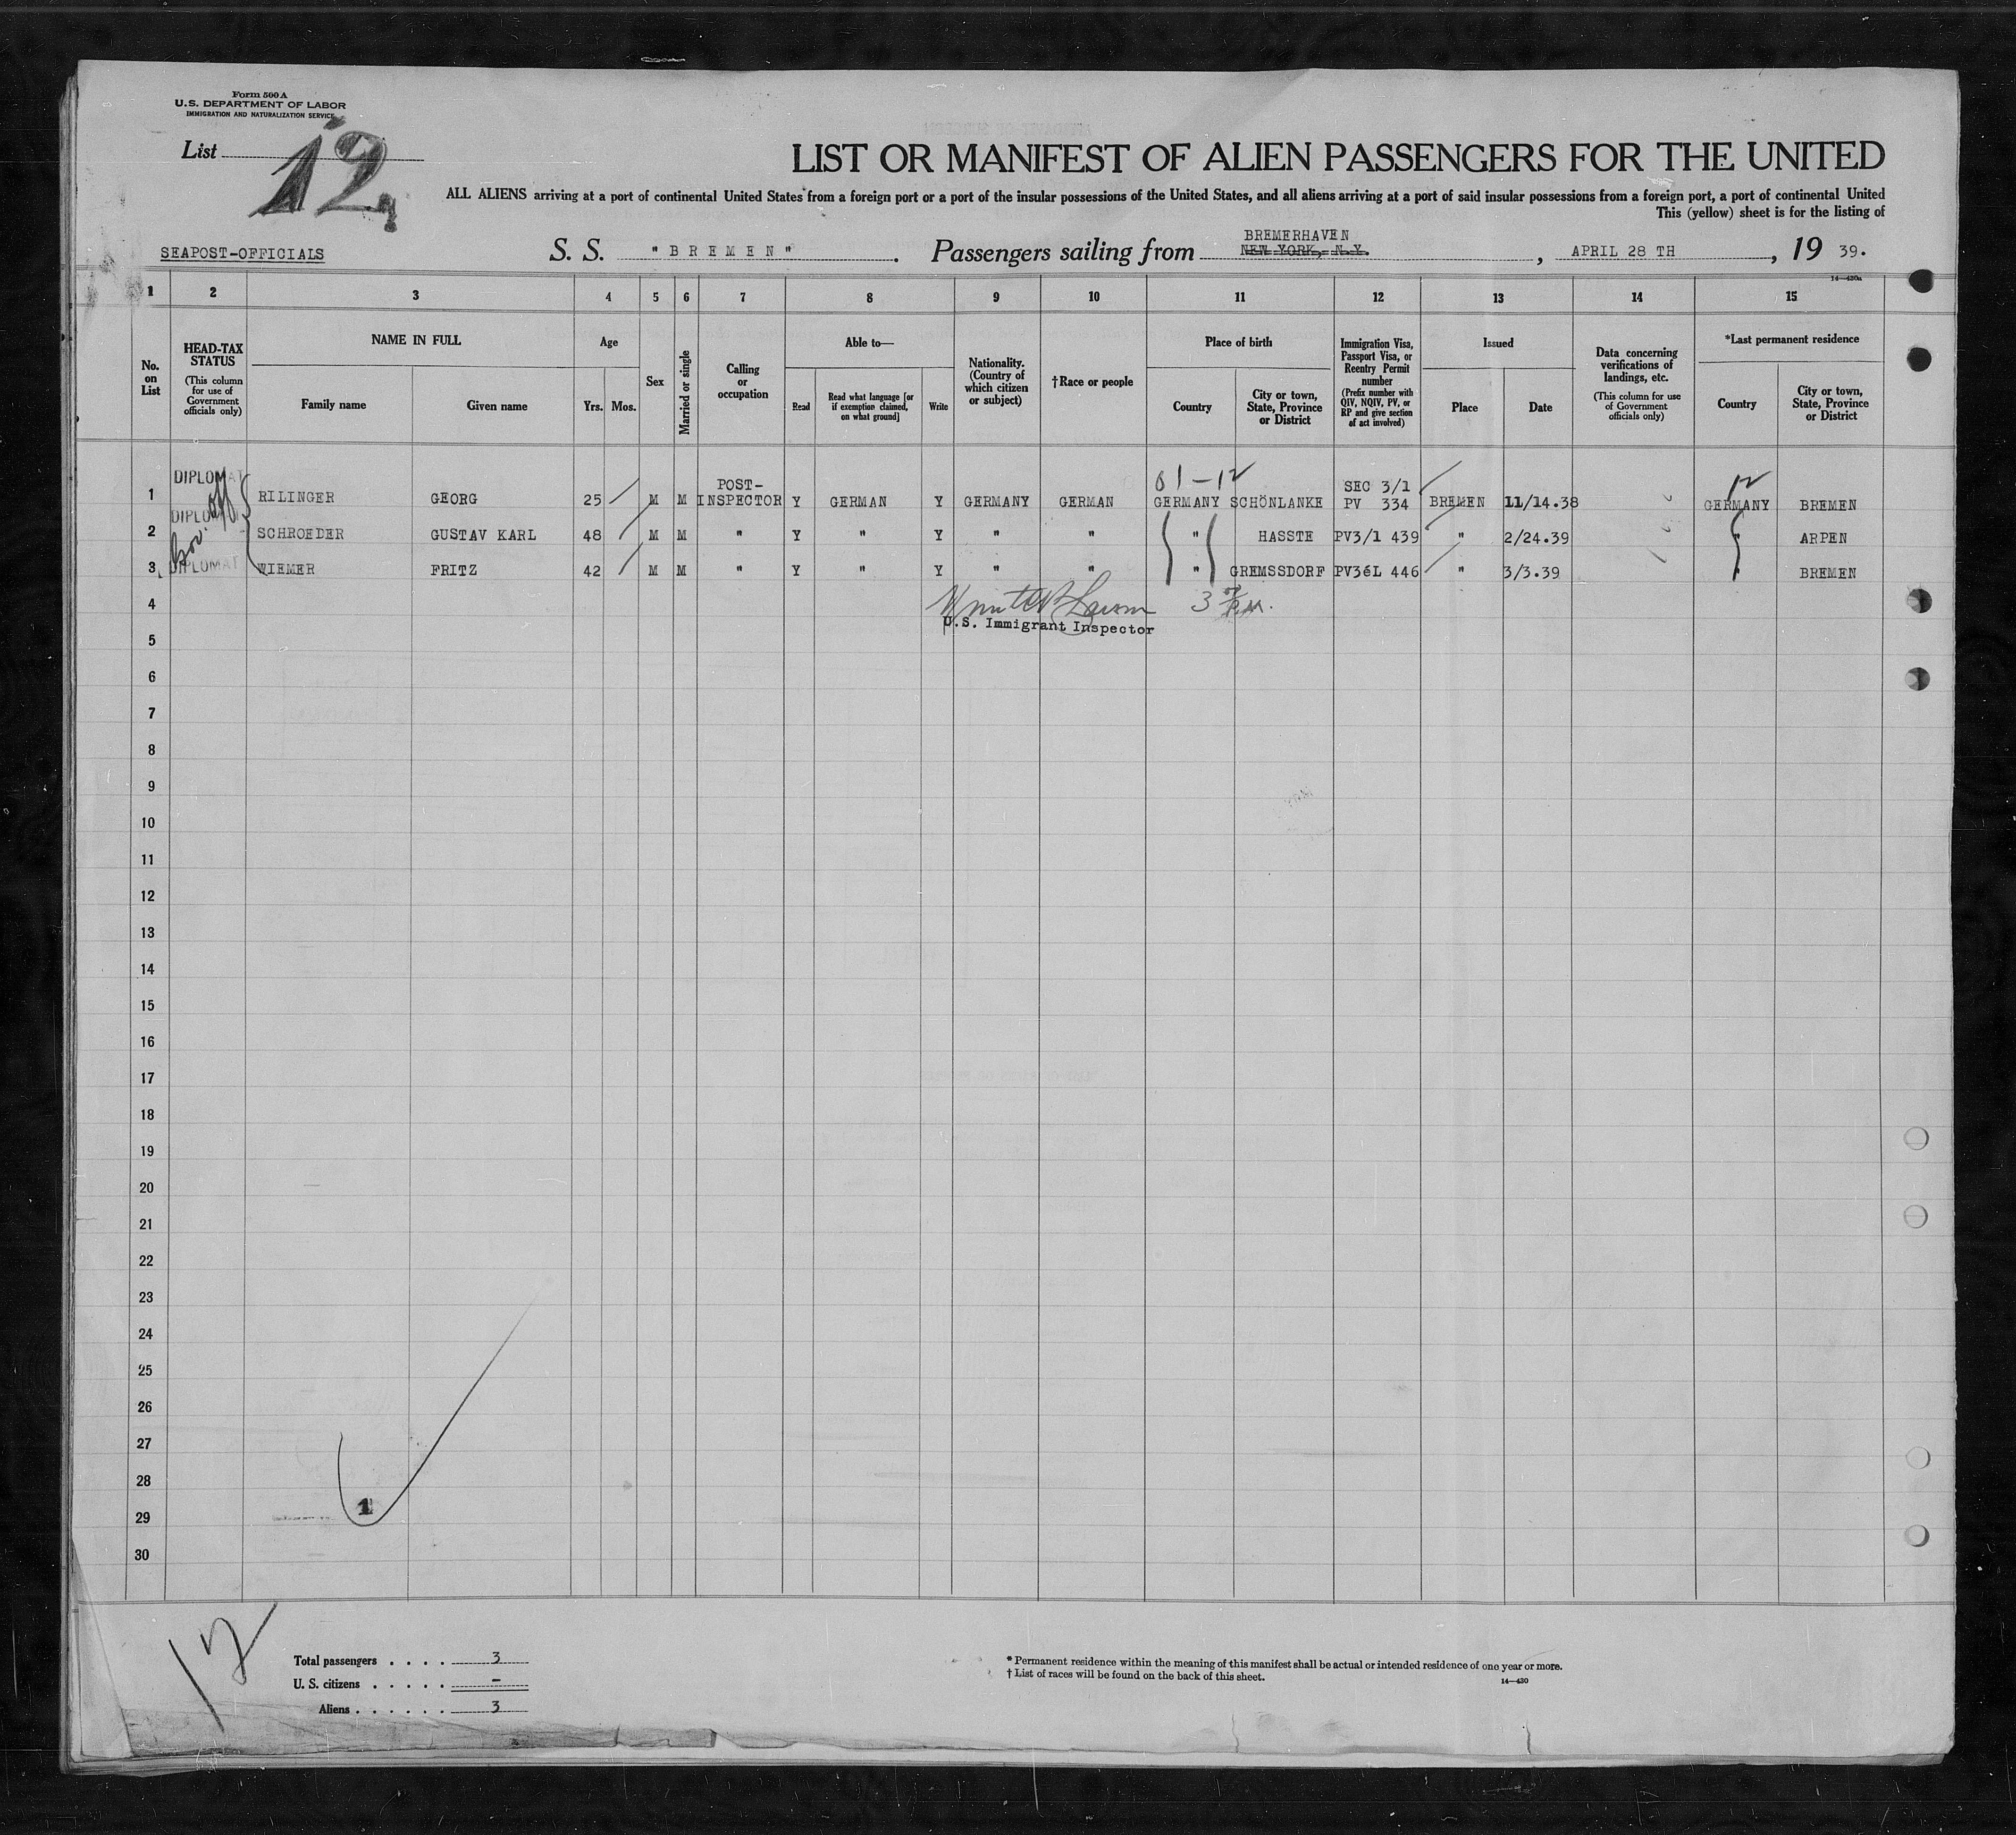 Form 500 A
U.S. DEPARTMENT OF LABOR
IMMIGRATION AND NATURALIZATION SERVICE
List 12
LIST OR MANIFEST OF ALIEN PASSENGERS FOR THE UNITED
ALL ALIENS arriving at a port of continental United States from a foreign port or a port of the insular possessions of the United States, and all aliens arriving at a port of said insular possessions from a foreign port, a port of continental United
This (yellow) sheet is for the listing of
SEAPOST-OFFICIALS S. S. "BREMEN". Passengers sailing from BREMERHAVEN NEW YORK, N.Y., APRIL 28 TH, 19 39.
14—430a
1 2 3 4 5 6 7 8 9 10 11 12 13 14 15
No. on List
HEAD-TAX STATUS (This column for use of Government officials only)
NAME IN FULL Family name Given name
Age Yrs. Mos.
Sex
Married or single
Calling or occupation
Able to— Read Read what language [or if exemption claimed, on what ground] Write
Nationality. (Country of which citizen or subject)
†Race or people
Place of birth Country City or town, State, Province or District
Immigration Visa, Passport Visa, or Reentry Permit number (Prefix number with QIV, NQIV, PV, or RP and give section of act involved)
Issued Place Date
Data concerning verifications of landings, etc. (This column for use of Government officials only)
*Last permanent residence Country City or town, State, Province or District
61-12 12
1 DIPLOMAT RILINGER GEORG 25 M M POST-INSPECTOR Y GERMAN Y GERMANY GERMAN GERMANY SCHÖNLANKE SEC 3/1 PV 334 BREMEN 11/14.38 GERMANY BREMEN
2 DIPLOMAT SCHROEDER GUSTAV KARL 48 M M " Y " Y " " " HASSTE PV3/1 439 " 2/24.39 " ARPEN
3 DIPLOMAT WIEMER FRITZ 42 M M " Y " Y " " " GREMSSDORF PV3éL 446 " 3/3.39 " BREMEN
Gov. off
4
U.S. Immigrant Inspector
5
6
7
8
9
10
11
12
13
14
15
16
17
18
19
20
21
22
23
24
25
26
27
28
29 1
30
12
Total passengers . . . . 3
U. S. citizens . . . . . -
Aliens . . . . . . 3
* Permanent residence within the meaning of this manifest shall be actual or intended residence of one year or more.
† List of races will be found on the back of this sheet.
14—430